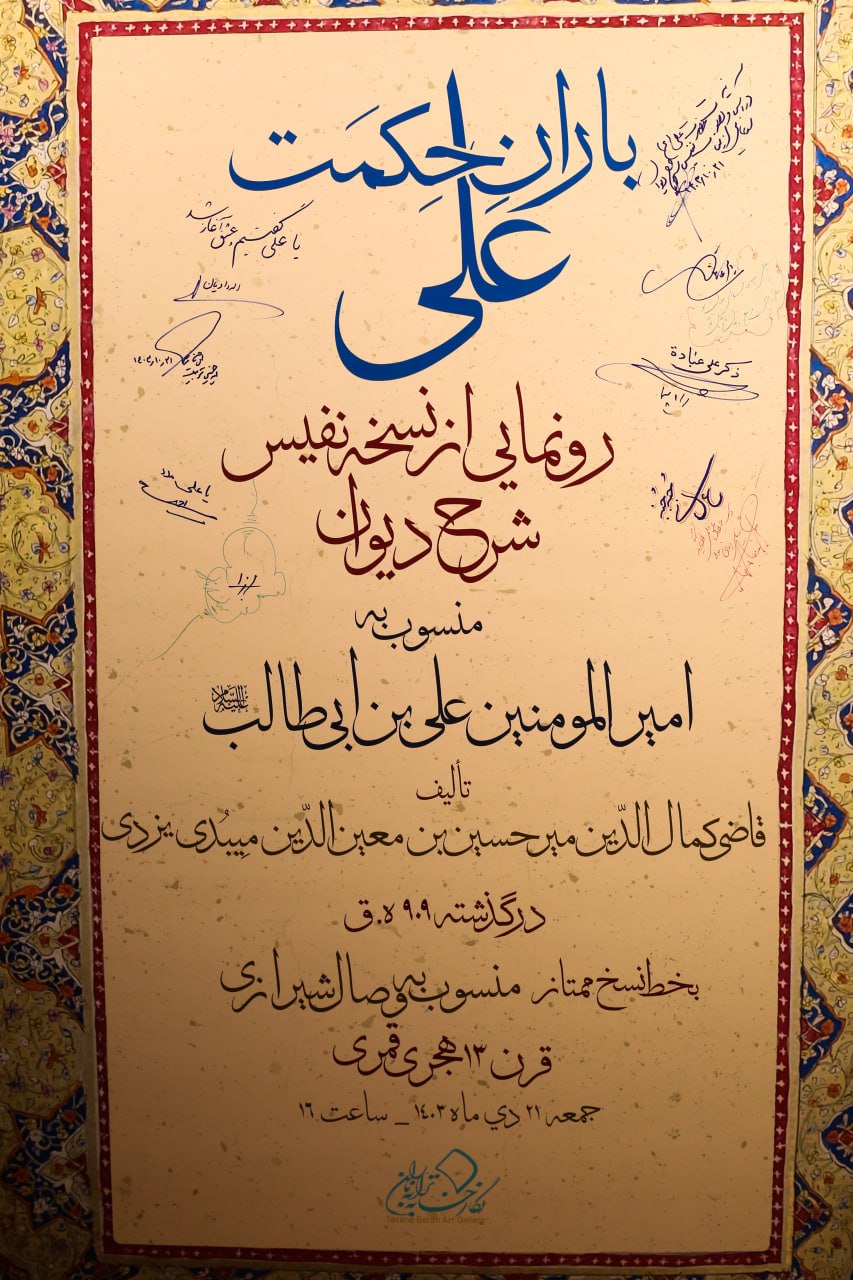 باران حِکمَت
عَلَی
یا علی گفتیم و عشق آغاز شد
۱۴۰۳/۱۰/۲۱
ذکر علی عبادة
یا علی مدد
رونمایی از نسخه نفیس
شرح دیوان
منسوب به
امیرالمومنین علی بن ابی طالب علیه السلام
تألیف
قاضی کمال الدّین میر حسین بن معین الدّین میبُدی یزدی
درگذشته ۹۰۹ ه.ق
بخط نسخ ممتاز منسوب به وصال شیرازی
قرن ۱۳ هجری قمری
جمعه ۲۱ دي ماه ۱۴۰۳ _ ساعت ۱۶
نگارخانه ترانه باران
Tarane Baran Art Gallery